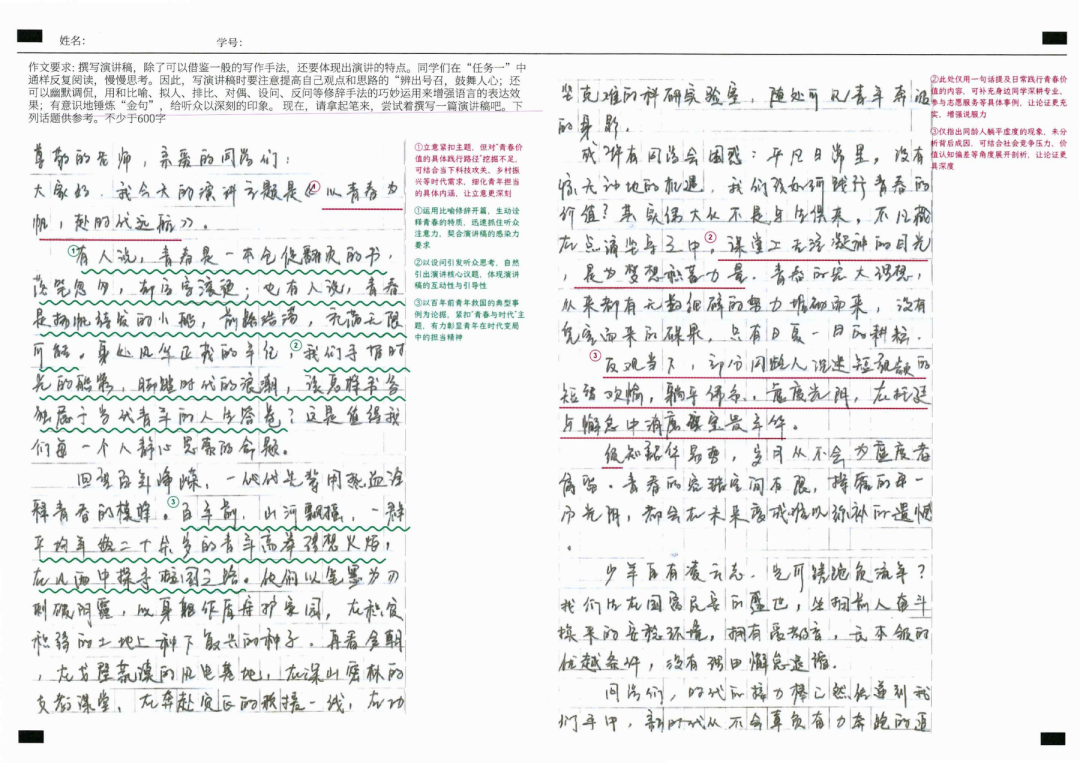 姓名：
学号：
作文要求：撰写演讲稿，除了可以借鉴一般的写作手法，还要体现出演讲的特点。同学们在“任务一”中
通样反复阅读，慢慢思考。因此，写演讲稿时要注意提高自己观点和思路的“辨出号召，鼓舞人心；还
可以幽默调侃，用和比喻、拟人、排比、对偶、设问、反问等修辞手法的巧妙运用来增强语言的表达效
果；有意识地锤炼“金句”，给听众以深刻的印象。 现在，请拿起笔来，尝试着撰写一篇演讲稿吧。下
列话题供参考。不少于600字
尊敬的老师，亲爱的同学们：
大家好，我今天的演讲主题是《以青春为
帆，赴时代远航》。
有人说，青春是一本仓促翻页的书，
落笔匆匆，却字字滚烫；也有人说，青春
是扬帆待发的小船，前路浩荡，充满无限
可能。身处风华正茂的年纪，我们手握时
光的船桨，脚踏时代的浪潮，该怎样书写
独属于当代青年的人生答卷？这是值得我
们每一个人静心思索的命题。
回望百年峥嵘，一代代先辈用热血诠
释青春的模样。百年前，山河飘摇，一群
平均年龄二十余岁的青年高举理想火炬，
在风雨中探寻救国之路。他们以笔墨为刃
刺破阴霾，以身躯作盾守护家园，在积贫
积弱的土地上种下复兴的种子。再看今朝
，在戈壁荒漠的风电基地，在深山密林的
支教课堂，在奔赴灾区的救援一线，在攻
①立意紧扣主题，但对“青春价
值的具体践行路径”挖掘不足，
可结合当下科技攻关、乡村振
兴等时代需求，细化青年担当
的具体内涵，让立意更深刻
①运用比喻修辞开篇，生动诠
释青春的特质，迅速抓住听众
注意力，契合演讲稿的感染力
要求
②以设问引发听众思考，自然
引出演讲核心议题，体现演讲
稿的互动性与引导性
③以百年前青年救国的典型事
例为论据，紧扣“青春与时代”主
题，有力彰显青年在时代变局
中的担当精神
坚克难的科研实验室，随处可见青年奔波
的身影。
或许有同学会困惑：平凡日常里，没有
惊天动地的机遇，我们该如何践行青春的
价值？其实伟大从不是与生俱来，不凡藏
在点滴坚守之中。课堂上专注凝神的目光
，是为梦想积蓄力量。青春的宏大理想，
从来都有无数细碎的努力堆砌而来，没有
凭空而来的硕果，只有日复一日的耕耘。
反观当下，部分同龄人沉迷短视频的
短暂欢愉，躺平佛系，虚度光阴，在拖延
与懈怠中消磨宝贵年华。
须知韶华易逝，岁月从不会为虚度者
停留。青春的容错空间有限，挥霍的每一
寸光阴，都会在未来变成难以弥补的遗憾
。
少年自有凌云志，岂可蹉跎负流年？
我们生在国富民安的盛世，坐拥前人奋斗
换来的安稳环境，拥有
优越条件，没有理由懈怠退缩。
同学们，时代的接力棒已然传递到我
们手中，新时代从不会辜负有力奔跑的追
②此处仅用一句话提及日常践行青春价
值的内容，可补充身边同学深耕专业、
参与志愿服务等具体事例，让论证更充
实，增强说服力
③仅指出同龄人躺平虚度的现象，未分
析背后成因，可结合社会竞争压力、价
值认知偏差等角度展开剖析，让论证更
具深度